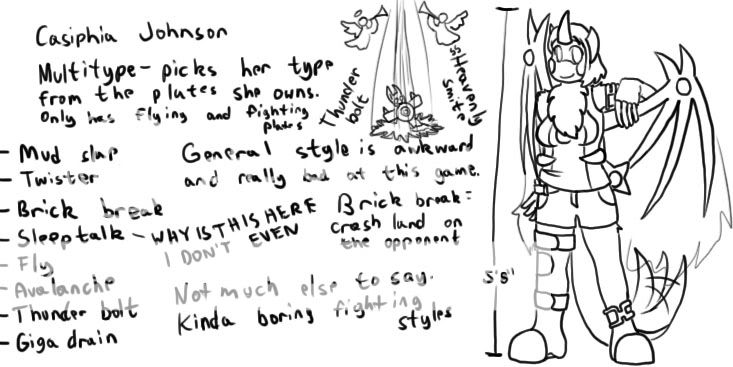 Casiphia Johnson
Multitype - picks her type
from the plates she owns.
Only has Flying and fighting
plates
Thunder
bolt
"Heavenly
Smite"
- Mud slap
- Twister
- Brick break
- Sleeptalk - WHY IS THIS HERE
I DON'T EVEN
- Fly
- Avalanche
- Thunder bolt
- Giga drain
General style is awkward
and really bad at this game.
Brick break:
crash land on
the opponent
Not much else to say.
Kinda boring fighting
styles
5'8"